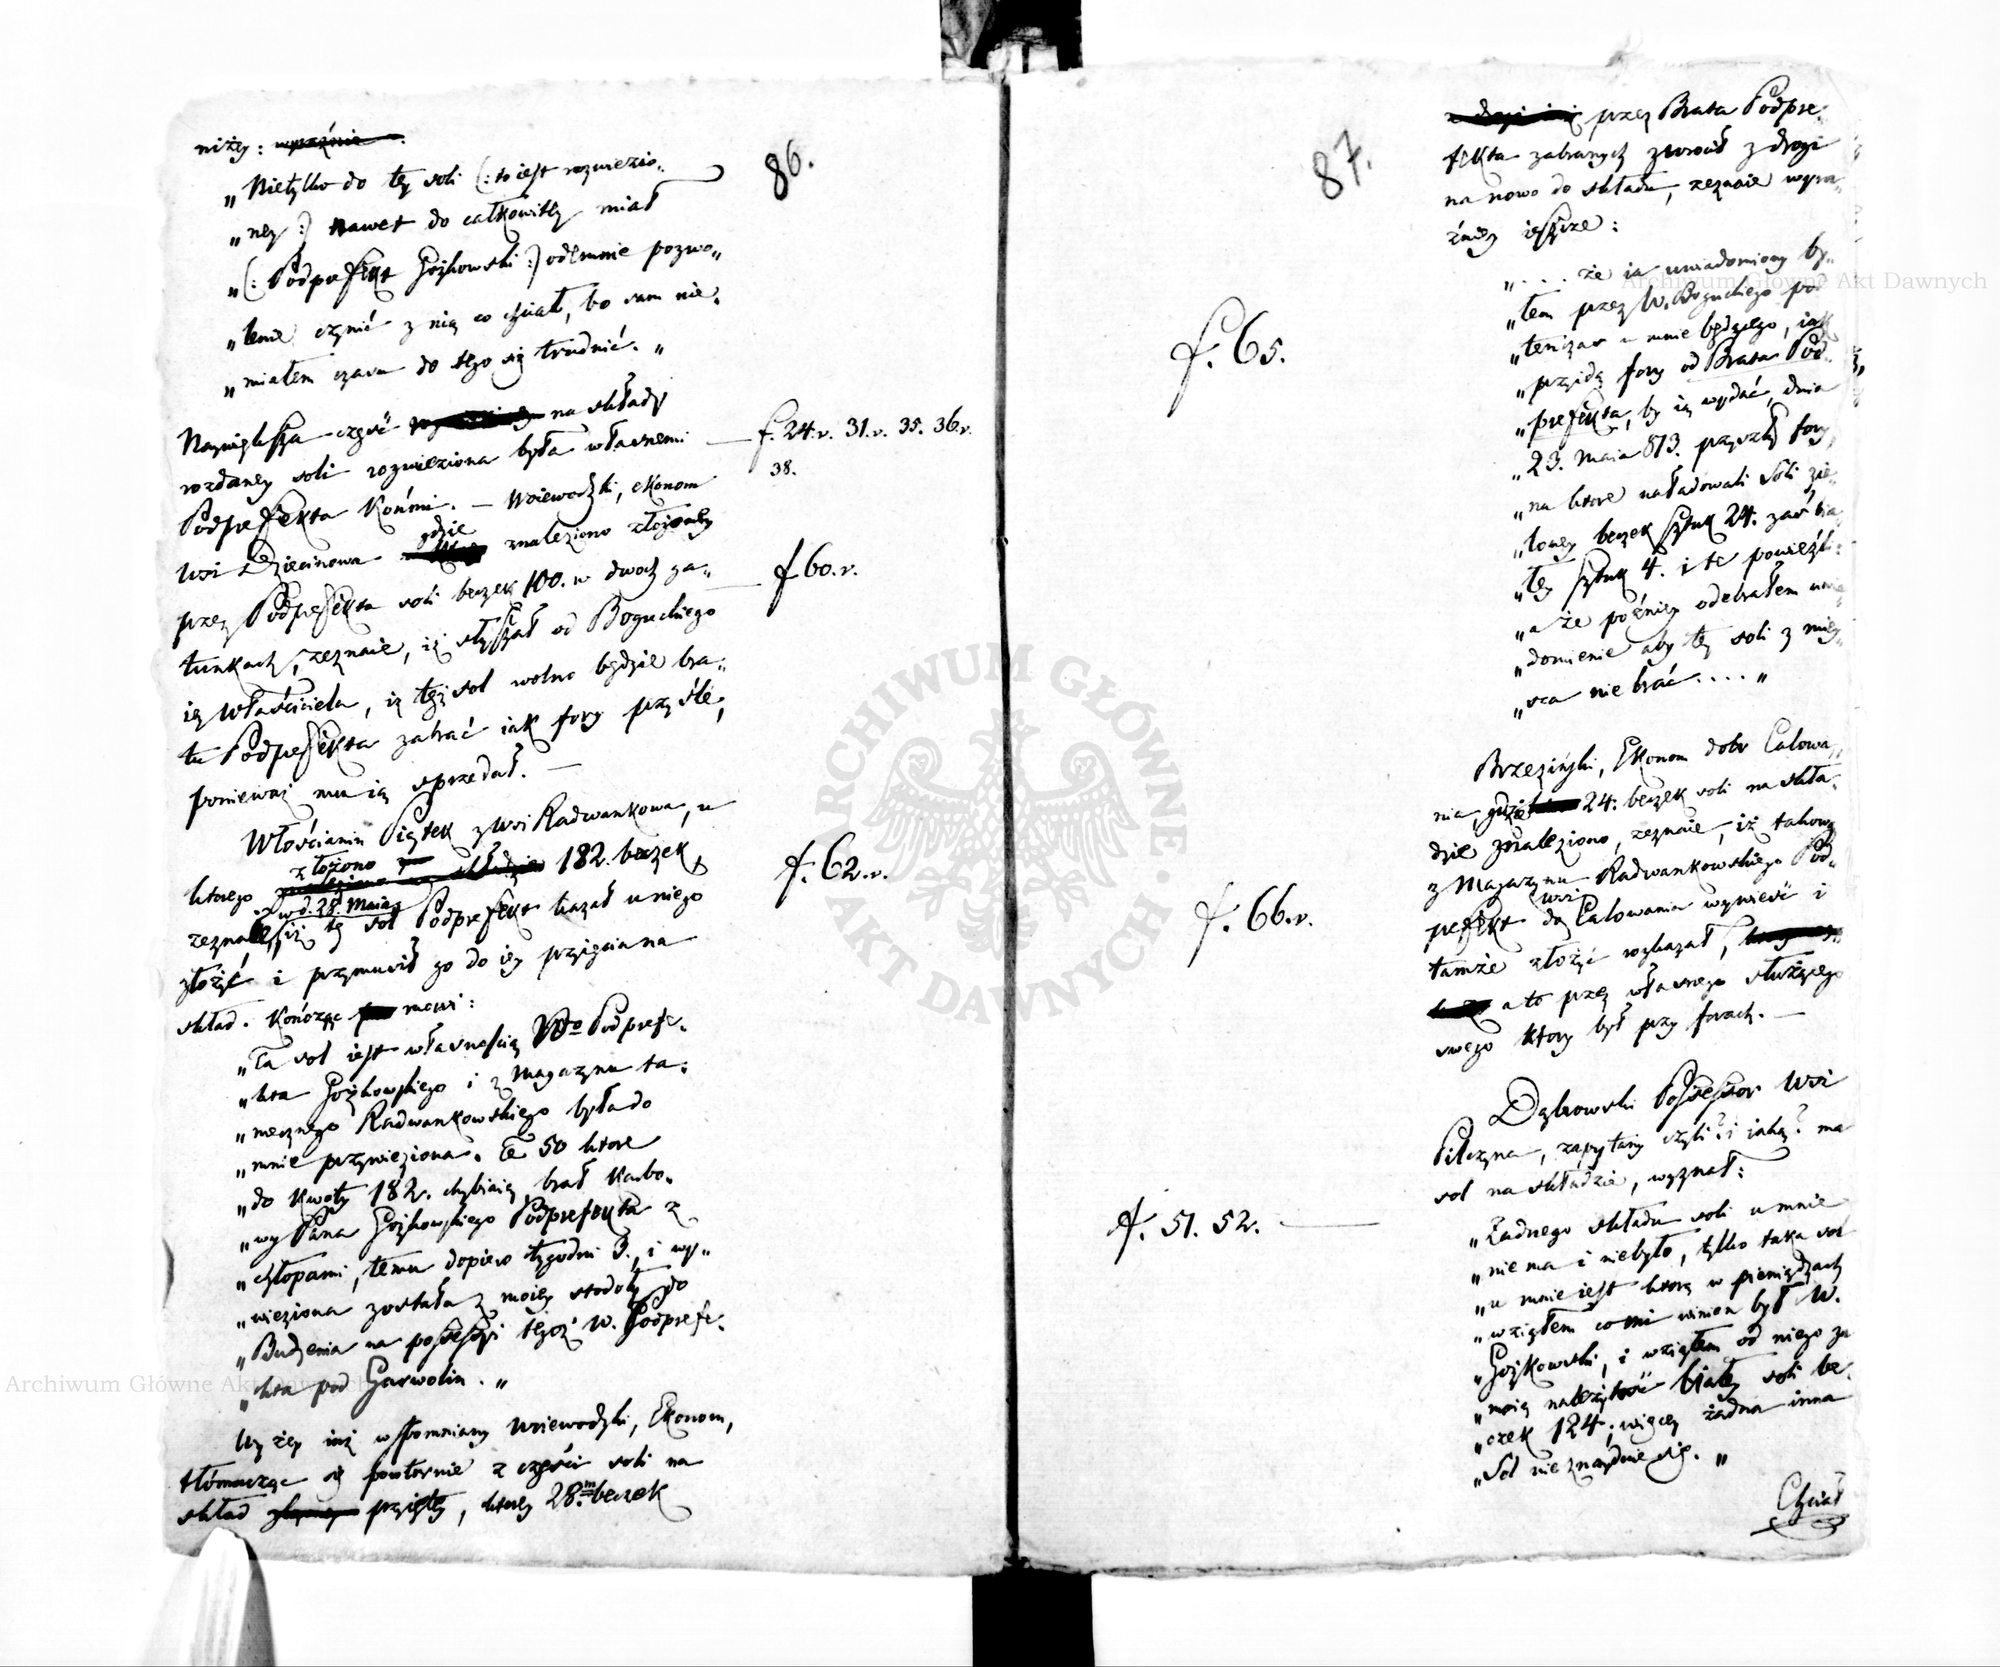 86.
niżey: wyraźnie
„Nietylko do tey soli (: to iest rozwiezio„
„ney :) nawet do całkowitey miał
„(: Podprefekt Goźkowski :) odemnie pozwo„
„lenie czynić z nią co chciał, bo sam nie„
„miałem czasu do tego się trudnić. „
Naywiększa część na składy
rozdaney soli rozwieziona była własnemi
Podprefekta Końmi. — Woiewodzki, ekonom
wsi Dziecinowa gdzie znaleziono złożoney
przez Podprefekta soli beczek 100. w dwoch ga„
tunkach, zeznaie, iż słyszał od Boguckiego
iey właściciela, iż tęż sol wolno będzie bra„
tu Podprefekta zabrać iak fory przyśle,
ponieważ mu ią sprzedał. —
Włościanin Piętek z wsi Radwankowa, u
ktorego złożono 182. beczek,
zeznał w d. 28. Maia, iż tę sol Podprefekt kazał u niego
złożyć i przymusił go do iey przyięcia na
skład. Kończąc mowi:
„Ta sol iest własnością Wo Podprefe„
„kta Goźkowskiego i z Magazynu ta„
„mecznego Radwankowskiego była do
„mnie przywieziona. Te 50 ktore
„do kwoty 182. chybiaią, brał Karbo„
„wy Pana Goźkowskiego Podprefekta z
„chłopami, temu dopiero tygodni 3., i wy„
„wieziona została z moiey stodoły do
„Budzenia na possessyi tegoż W. Podprefe„
„kta pod Garwolin. „
Wyżey iuż wspomniany Woiewodzki, Ekonom,
tłómacząc się powtornie z części soli na
skład przyiętey, ktorey 28.m beczek
f. 24.v. 31.v. 35. 36.v.
38.
f 60.v.
f. 62.v.
87.
przez Brata Podpre„
fekta zabranych zwrocił z drogi
na nowo do składu, zeznaie wyra„
źniey ieszcze:
„.... że ia uwiadomiony by„
„łem przez W. Boguckiego pod
„tenczas u mnie będącego, iak
„przyidą fory od Brata Pod„
„prefekta, by ią wydać, dnia
„23. Maia 813. przyszły fory,
„na ktore naładowali soli zie„
„loney beczek sztuk 24. zaś bia„
„łey sztuk 4. i te powieźli:
„a że pozniey odebrałem uwia
„domienie aby tey soli z miey„
„sca nie brać.... „
Brzeziński, Ekonom dobr Całowa„
nia, gdzie 24. beczek soli na skła„
dzie znaleziono, zeznaie, iż takową
z Magazynu Radwankowskiego Pod„
prefekt do wsi Całowania wywieść i
tamże złożyć rozkazał,
a to przez własnego służącego
swego ktory był przy forach. —
Dąbrowski Possessor wsi
Pilczyna, zapytany czyli? i iaką? ma
sol na składzie, wyznał:
„Żadnego składu soli u mnie
„nie ma i niebyło, tylko taka sol
„u mnie iest ktorą w pieniądzach
„wziąłem co mi winien był W.
„Goźkowski, i wziąłem od niego za
„moią należytość białey soli be„
„czek 124. więcey żadna inna
„Sol nieznayduie się. „
Chciał
f. 65.
f. 66.v.
f. 51. 52. —
ARCHIWUM GŁÓWNE AKT DAWNYCH
Archiwum Główne Akt Dawnych
Archiwum Główne Akt Dawnych